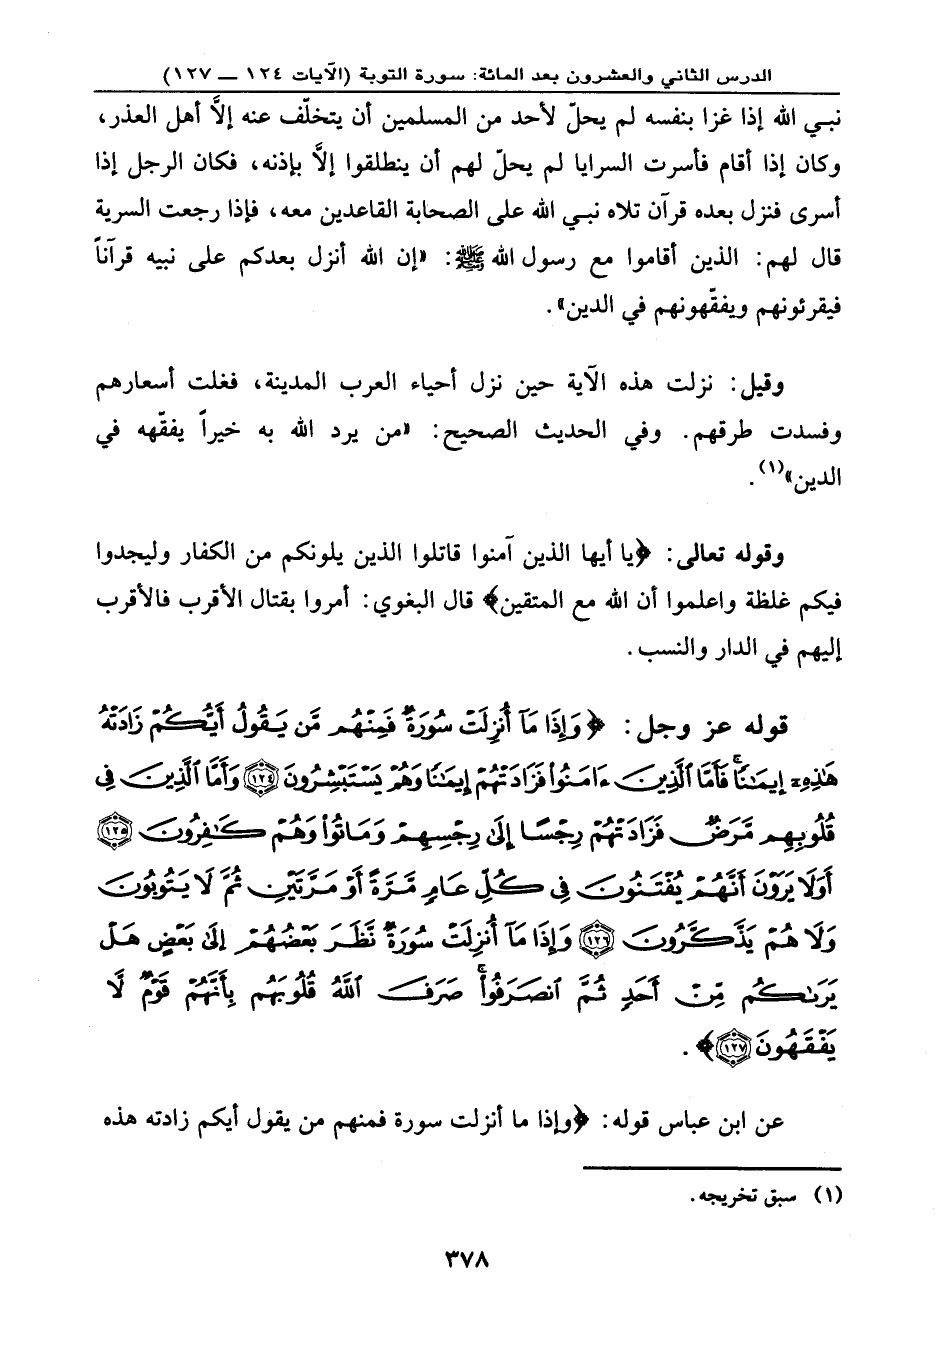 الدرس الثاني والعشرون بعد المائة: سورة التوبة (الآيات ١٢٤ — ١٢٧)
نبي الله إذا غزا بنفسه لم يحلّ لأحد من المسلمين أن يتخلّف عنه إلاَّ أهل العذر،
وكان إذا أقام فأسرت السرايا لم يحلّ لهم أن ينطلقوا إلاَّ بإذنه، فكان الرجل إذا
أسرى فنزل بعده قرآن تلاه نبي الله على الصحابة القاعدين معه، فإذا رجعت السرية
قال لهم: الذين أقاموا مع رسول الله ﷺ: «إن الله أنزل بعدكم على نبيه قرآناً
فيقرئونهم ويفقّهونهم في الدين».
وقيل: نزلت هذه الآية حين نزل أحياء العرب المدينة، فغلت أسعارهم
وفسدت طرقهم. وفي الحديث الصحيح: «من يرد الله به خيراً يفقّهه في
الدين»(١).
وقوله تعالى: ﴿يا أيها الذين آمنوا قاتلوا الذين يلونكم من الكفار وليجدوا
فيكم غلظة واعلموا أن الله مع المتقين﴾ قال البغوي: أمروا بقتال الأقرب فالأقرب
إليهم في الدار والنسب.
قوله عز وجل: ﴿وَإِذَا مَآ أُنزِلَتْ سُورَةٌ فَمِنْهُم مَّن يَقُولُ أَيُّكُمْ زَادَتْهُ
هَٰذِهِۦٓ إِيمَٰنًاۚ فَأَمَّا ٱلَّذِينَ ءَامَنُوا۟ فَزَادَتْهُمْ إِيمَٰنًا وَهُمْ يَسْتَبْشِرُونَ ١٢٤ وَأَمَّا ٱلَّذِينَ فِى
قُلُوبِهِم مَّرَضٌ فَزَادَتْهُمْ رِجْسًا إِلَىٰ رِجْسِهِمْ وَمَاتُوا۟ وَهُمْ كَٰفِرُونَ ١٢٥
أَوَلَا يَرَوْنَ أَنَّهُمْ يُفْتَنُونَ فِى كُلِّ عَامٍ مَّرَّةً أَوْ مَرَّتَيْنِ ثُمَّ لَا يَتُوبُونَ
وَلَا هُمْ يَذَّكَّرُونَ ١٢٦ وَإِذَا مَآ أُنزِلَتْ سُورَةٌ نَّظَرَ بَعْضُهُمْ إِلَىٰ بَعْضٍ هَلْ
يَرَىٰكُم مِّنْ أَحَدٍ ثُمَّ ٱنصَرَفُوا۟ۚ صَرَفَ ٱللَّهُ قُلُوبَهُم بِأَنَّهُمْ قَوْمٌ لَّا
يَفْقَهُونَ ١٢٧﴾.
عن ابن عباس قوله: ﴿وإذا ما أنزلت سورة فمنهم من يقول أيكم زادته هذه
(١) سبق تخريجه.
٣٧٨